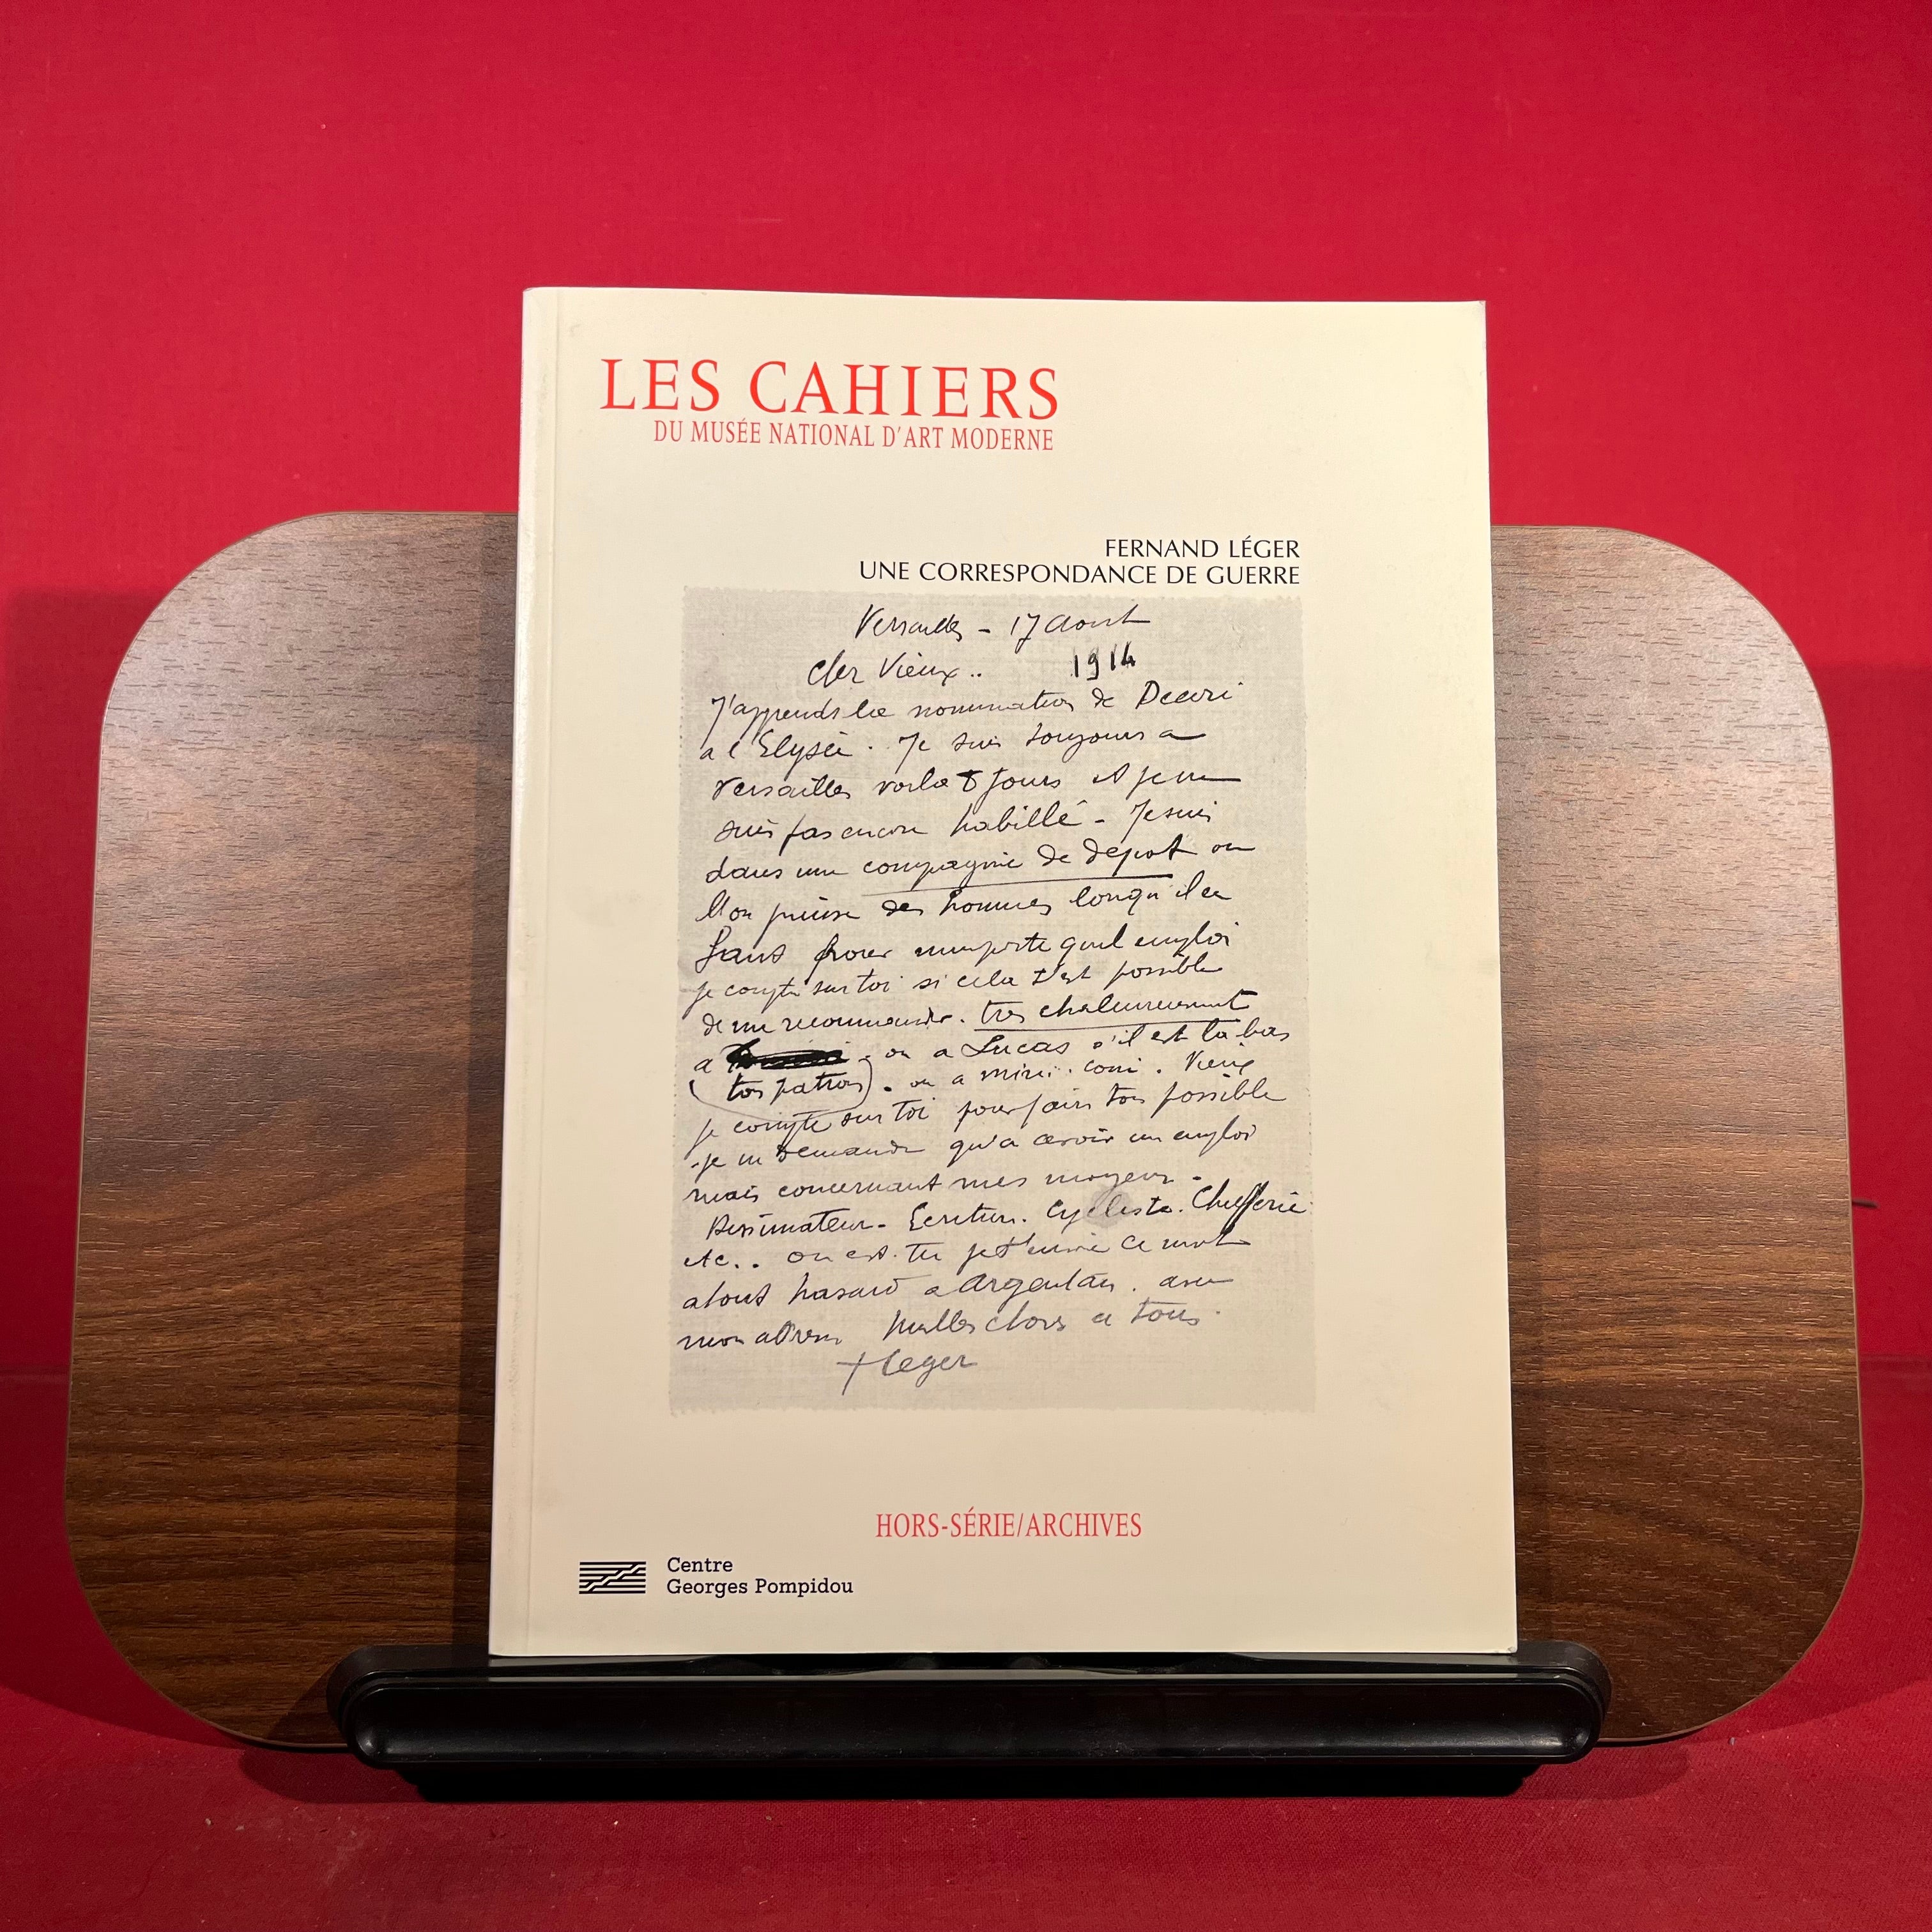 LES CAHIERS
DU MUSÉE NATIONAL D'ART MODERNE
FERNAND LÉGER
UNE CORRESPONDANCE DE GUERRE
Versailles - 17 Aout
Cher Vieux.. 1914
J'apprends la nomination de Decori
a l'Elysée. Je suis toujours a
Versailles voila 8 jours et je ne
suis pas encore habillé - Je suis
dans une compagnie de depot ou
l'on puise des hommes lorsqu'il en
faut pour n'importe quel emploi
je compte sur toi si cela t'est possible
de me recommander. tres chaleureusement
a - ou a Lucas s'il est la bas
(ton patron). ou a . Vieux
je compte sur toi pour faire ton possible
- je ne demande qu'a avoir un emploi
mais concernant mes moyens -
Dessinateur - Ecriture. Cycliste. Chefferie
etc.. ou est tu je t'envoie ce mot
a tout hasard a Argentan. avec
mon adresse Milles choses a tous.
F Leger
HORS-SÉRIE/ARCHIVES
Centre
Georges Pompidou